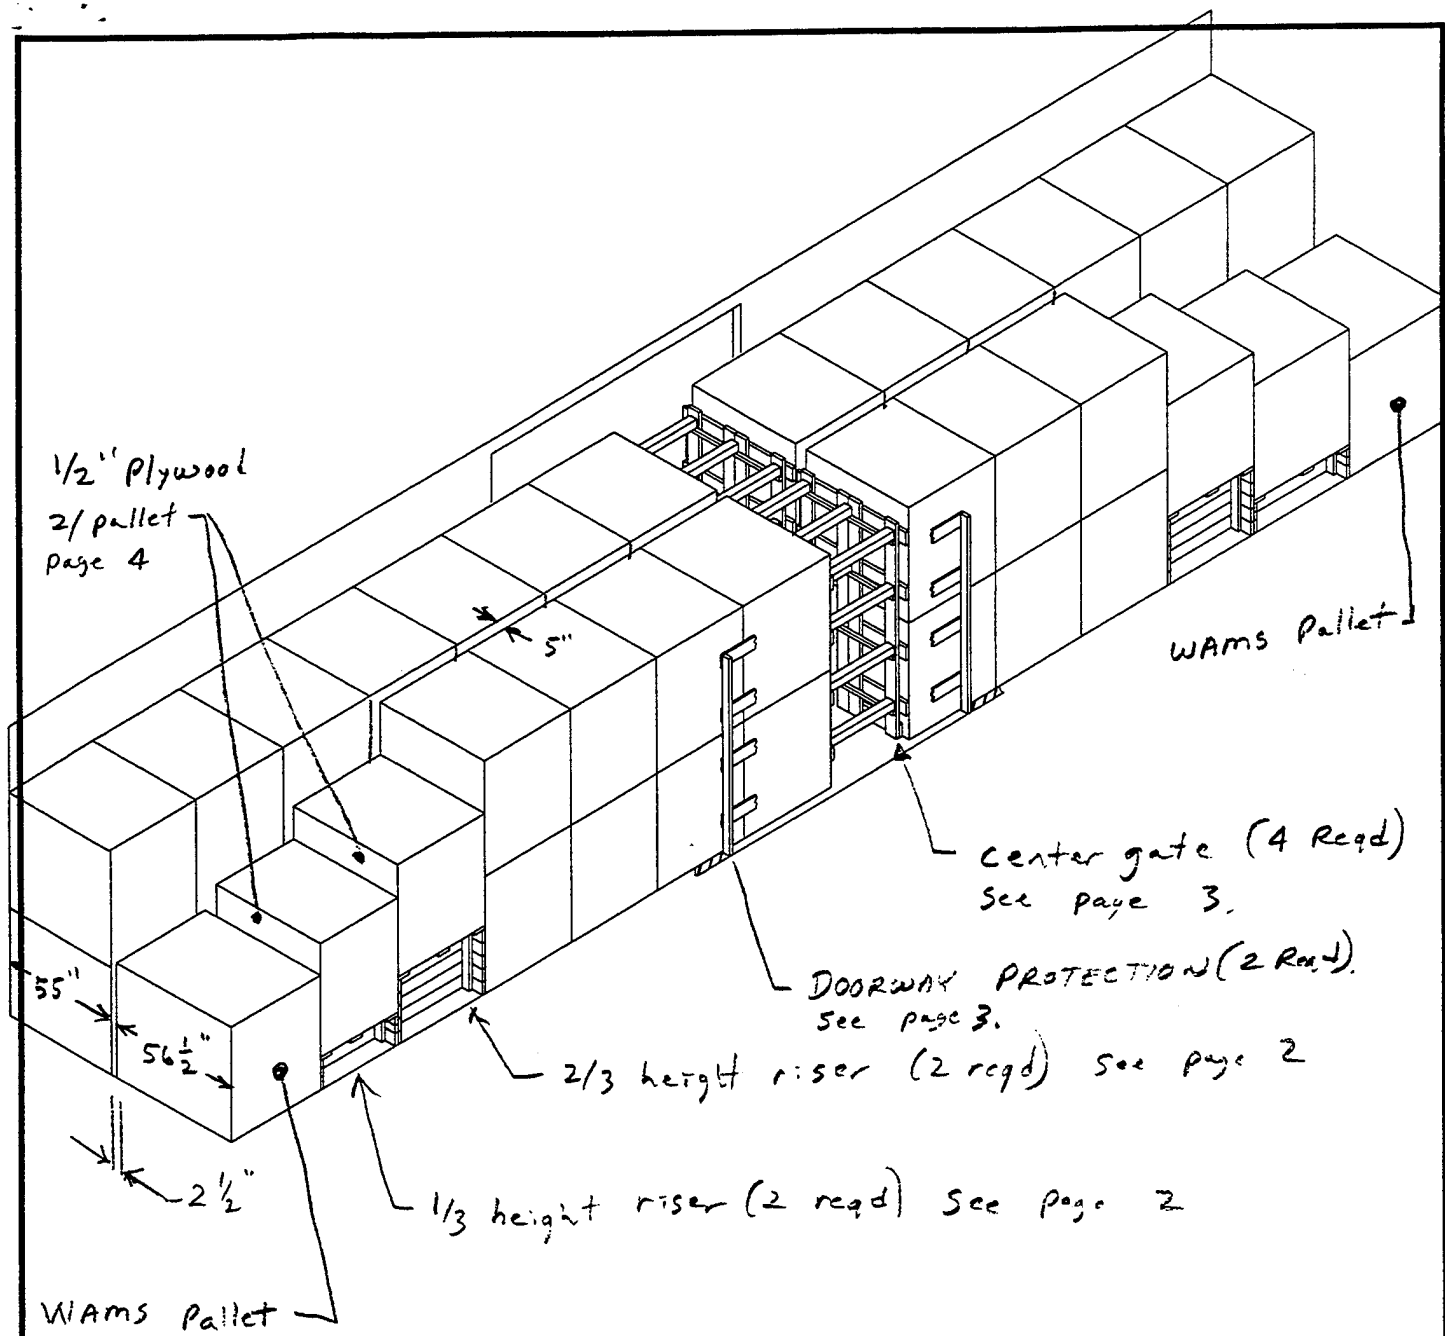 1/2" Plywood
2/pallet
page 4
5"
WAMS Pallet
center gate (4 Reqd)
See page 3.
DOORWAY PROTECTION (2 Reqd).
See page 3.
55"
56 1/2"
2/3 height riser (2 reqd) See page 2
2 1/2"
1/3 height riser (2 reqd) See page 2
WAMS Pallet